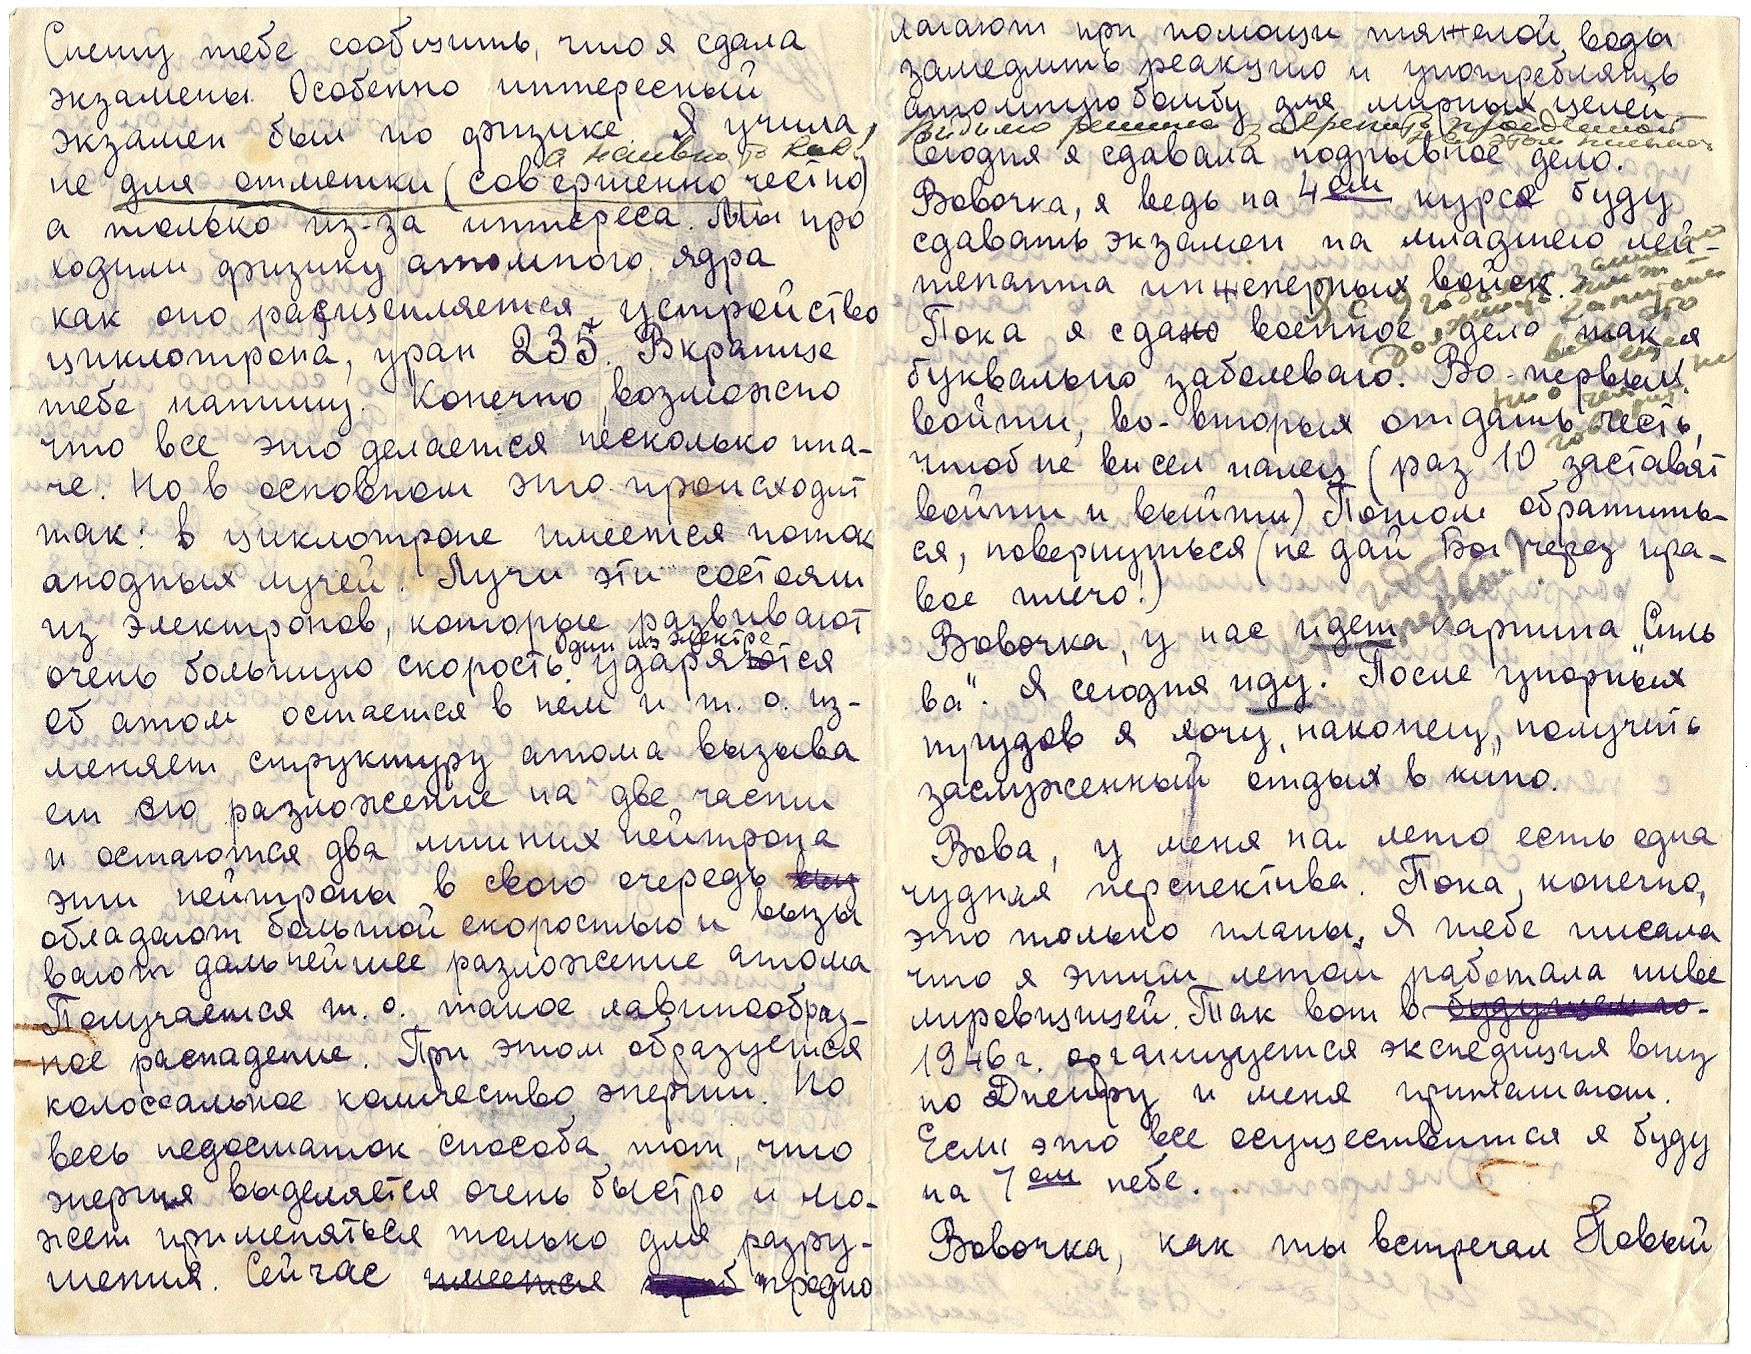 Спешу тебе сообщить, что я сдала
экзамены. Особенно интересный
экзамен был по физике. Я учила,
а наивно то как!
не для отметки (совершенно честно)
а только из-за интереса. Мы про
ходили физику атомного ядра
как оно расщепляется, устройство
циклотрона, уран 235. Вкратце
тебе напишу. Конечно, возможно
что все это делается несколько ина-
че. Но в основном это происходит
так: в циклотроне имеется поток
анодных лучей. Лучи эти состоят
из электронов, которые развивают
один из электро
очень большую скорость. ударяются
об атом остается в нем и т. о. из-
меняет структуру атома вызыва
ет его разложение на две части
и остаются два лишних нейтрона
эти нейтроны в свою очередь выз
обладают большой скоростью и вызы
вают дальнейшее разложение атома
Получается т. о. такое лавинообраз-
ное распадение. При этом образуется
колоссальное количество энергии. Но
весь недостаток способа тот, что
энергия выделяется очень быстро и мо-
жет применяться только для разру-
шения. Сейчас имеется предпо
лагают при помощи тяжелой воды
замедлить реакцию и употреблять
атомную бомбу для мирных целей
видимо решила закрепить пройденное
Сегодня я сдавала подрывное дело.
Вовочка, я ведь на 4ом курсе буду
сдавать экзамен на младшего лей-
тенанта инженерных войск.
Пока я сдаю военное дело так я
буквально заболеваю. Во-первых
войти, во-вторых отдать честь,
чтоб не висел палец (раз 10 заставят
войти и выйти) Потом обратить-
ся, повернуться (не дай Бог через пра-
вое плечо!)
Вовочка, у нас идет картина "Силь
ва". Я сегодня иду. После упорных
трудов я хочу, наконец, получить
заслуженный отдых в кино.
Вова, у меня на лето есть одна
чудная перспектива. Пока, конечно,
это только планы. Я тебе писала
что я этим летом работала ниве
лировщицей. Так вот в будущем го-
1946 г. организуется экспедиция вниз
по Днепру и меня приглашают.
Если это все осуществится я буду
на 7ом небе.
Вовочка, как ты встречал Новый